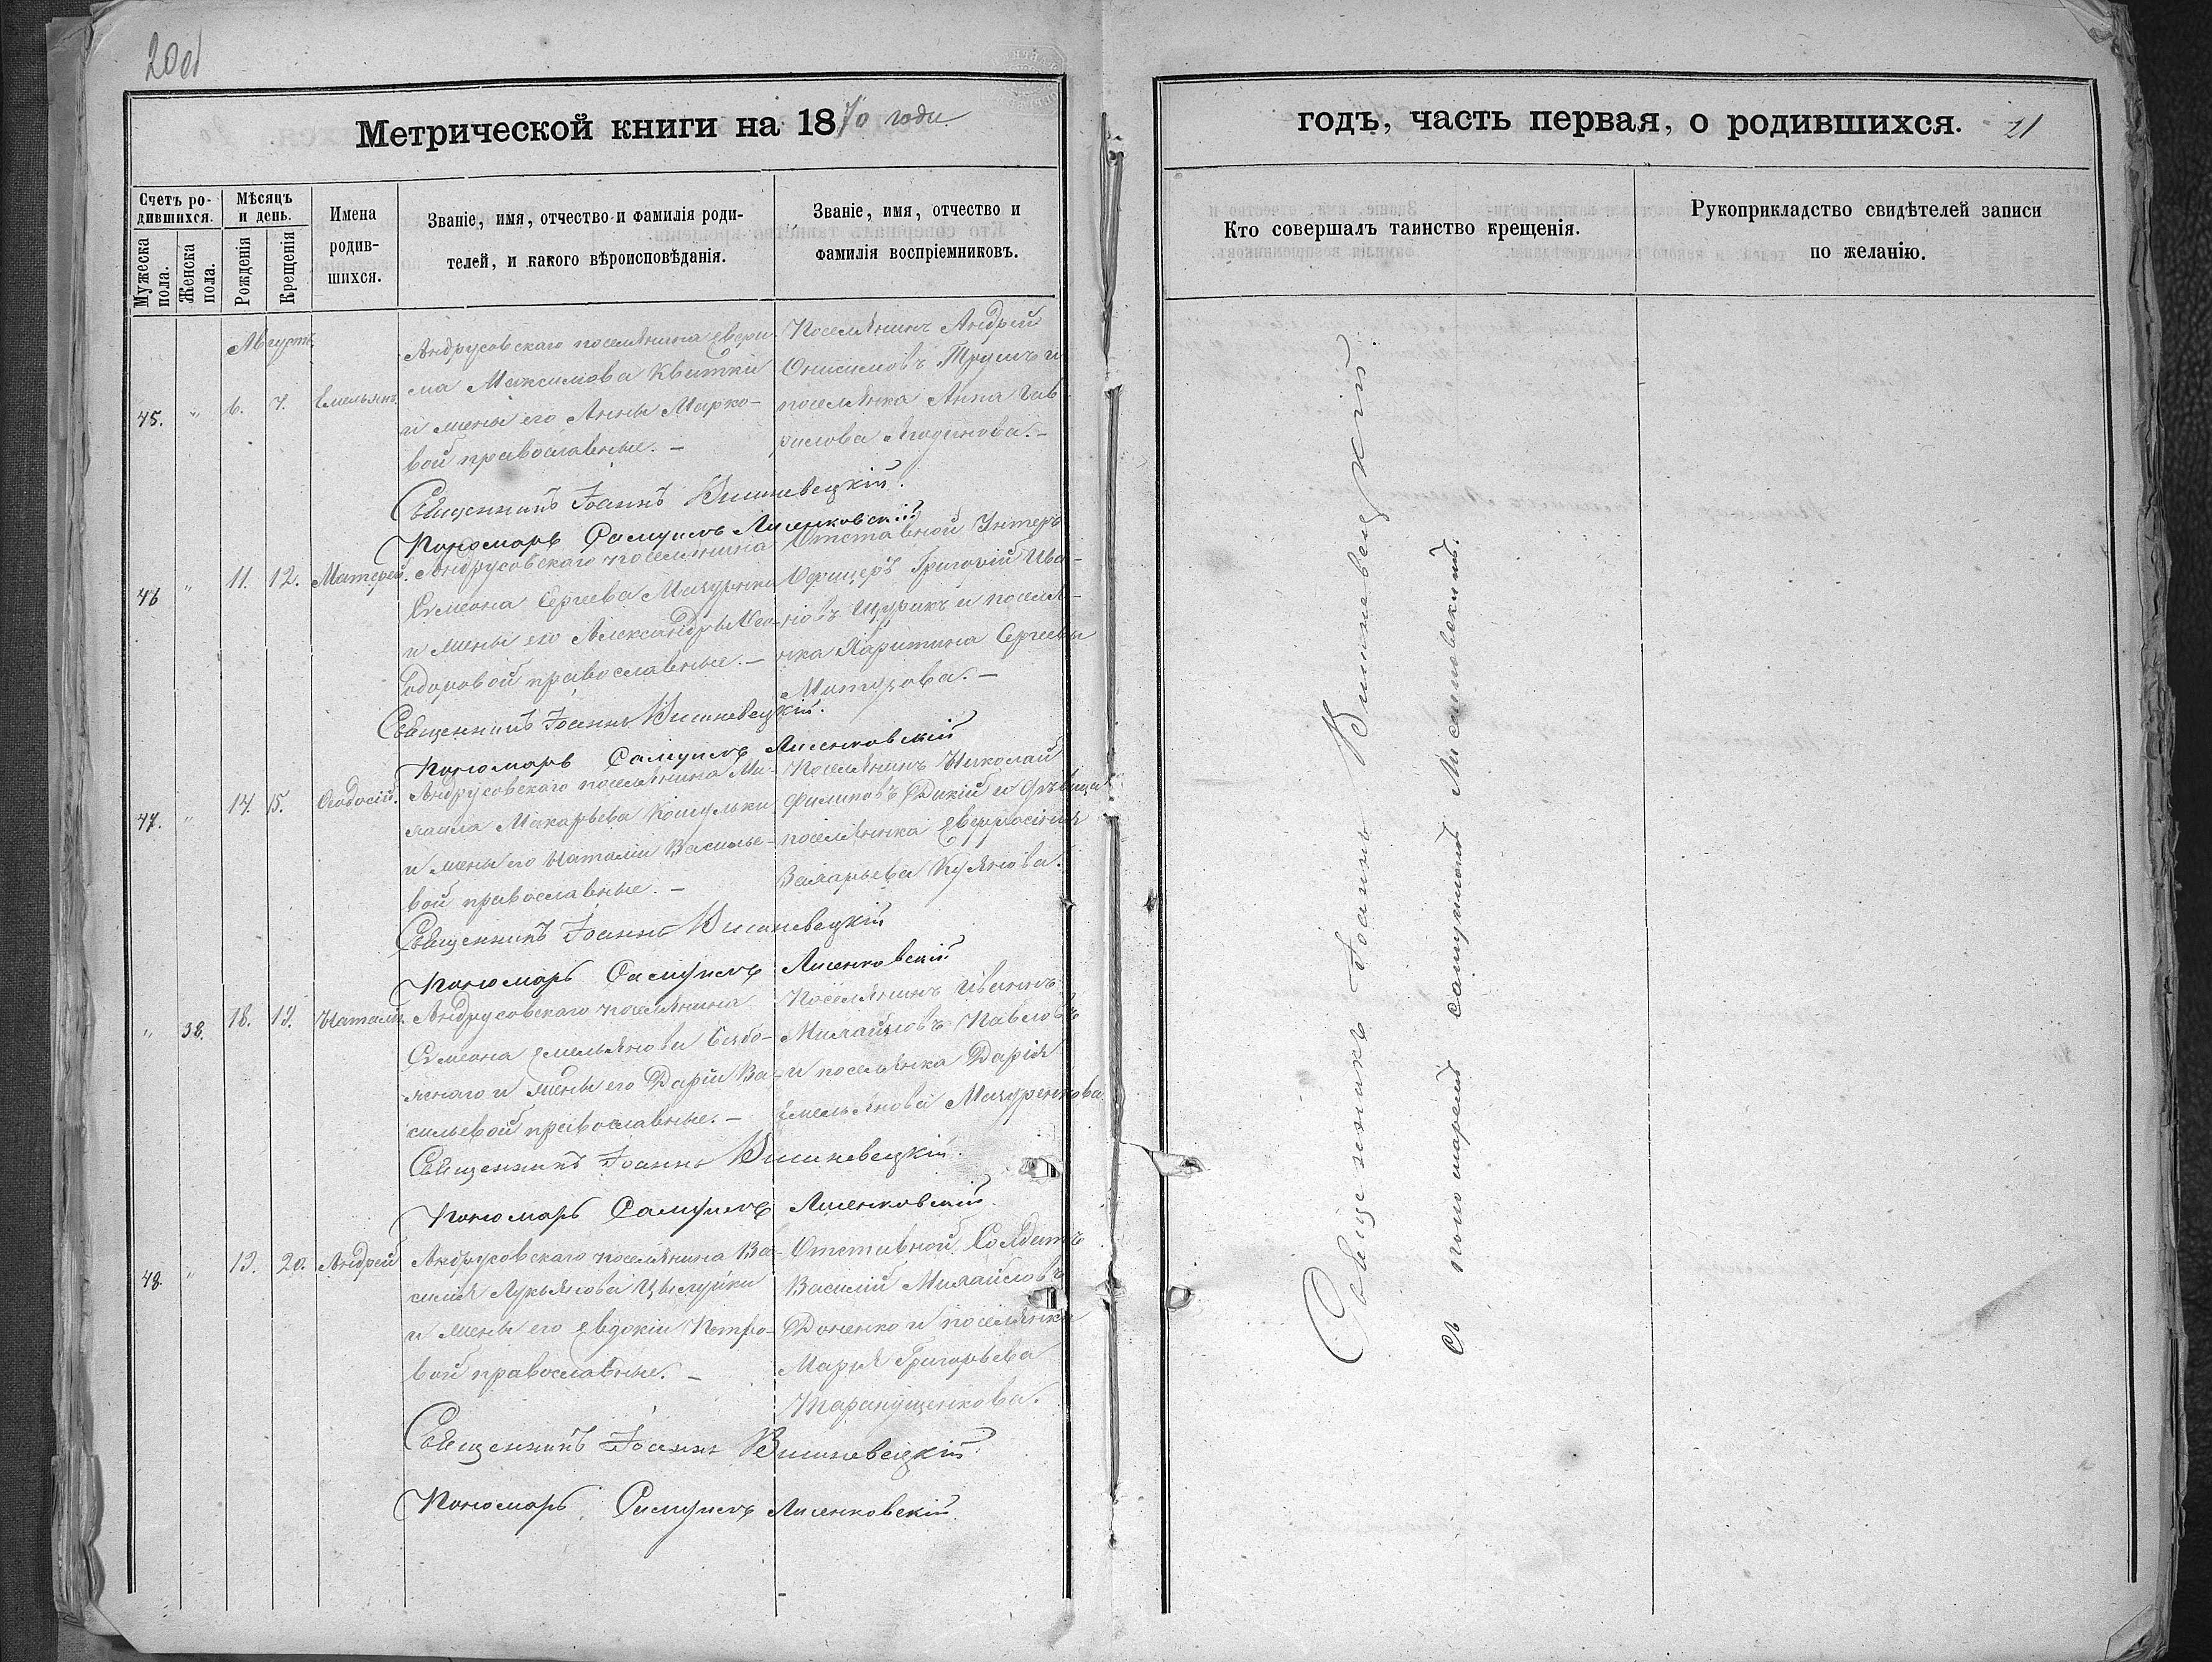 200
Метрической книги на 1870 годъ
Счетъ ро-
дившихся.
Мѣсяцъ
и день.
Мужеска
пола.
Женска
пола.
Рожденія
Крещенія
Имена
родив-
шихся.
Званіе, имя, отчество и фамилія роди-
телей, и какого вѣроисповѣданія.
Званіе, имя, отчество и
фамилія воспріемниковъ.
Августъ
45. " 6. 7. Емельянъ.
Андрусовскаго поселянина
Максимова Квитки
и жены его Анны Марко-
вой православные. –
Поселянинъ Андрей
Онисимовъ и
поселянка Анна Гав
рилова
Священникъ Іоаннъ Вишневецкій.
Пономарь Самуилъ Лисенковскій
46 " 11. 12. Матфей.
Андрусовскаго поселянина
Симеона Сергеева
и жены его Александры Ѳео-
доровой православные. –
Отставной Унтеръ
Офицеръ Григорій Ива-
новъ Щурикъ и поселя-
нка Харитина Сергеева
Священникъ Іоаннъ Вишневецкій.
Пономарь Самуилъ Лисенковскій
47. " 14. 15. Ѳеодосій.
Андрусовскаго поселянина Ми-
хаила Макарьева
и жены его Наталіи Василье-
вой православные. –
Поселянинъ Николай
Филиповъ Дикій и дѣвица
поселянка Евфросинія
Захарьева
Священникъ Іоаннъ Вишневецкій
Пономарь Самуилъ Лисенковскій
" 38. 18. 19. Наталія.
Андрусовскаго поселянина
Симеона Емельянова Бабо-
и жены его Даріи Ва-
сильевой православные. –
Поселянинъ
Михайловъ Павловъ
и поселянка Дарія
Емельянова
Священникъ Іоаннъ Вишневецкій.
Пономарь Самуилъ Лисенковскій
48. " 19. 20. Андрей
Андрусовскаго поселянина Ва-
силія Лукьянова
и жены его Евдокіи Петро-
вой православные. –
Отставной Солдатъ
Василій Михайловъ
Доненко и поселянка
Марія Григорьева
Таранущенкова.
Священникъ Іоаннъ Вишневецкій
Пономарь Самуилъ Лисенковскій
годъ, часть первая, о родившихся.
21
Кто совершалъ таинство крещенія.
Рукоприкладство свидѣтелей записи
по желанію.
Священникъ Іоаннъ Вишневецкій
съ пономаремъ Самуиломъ Лисенковскимъ.